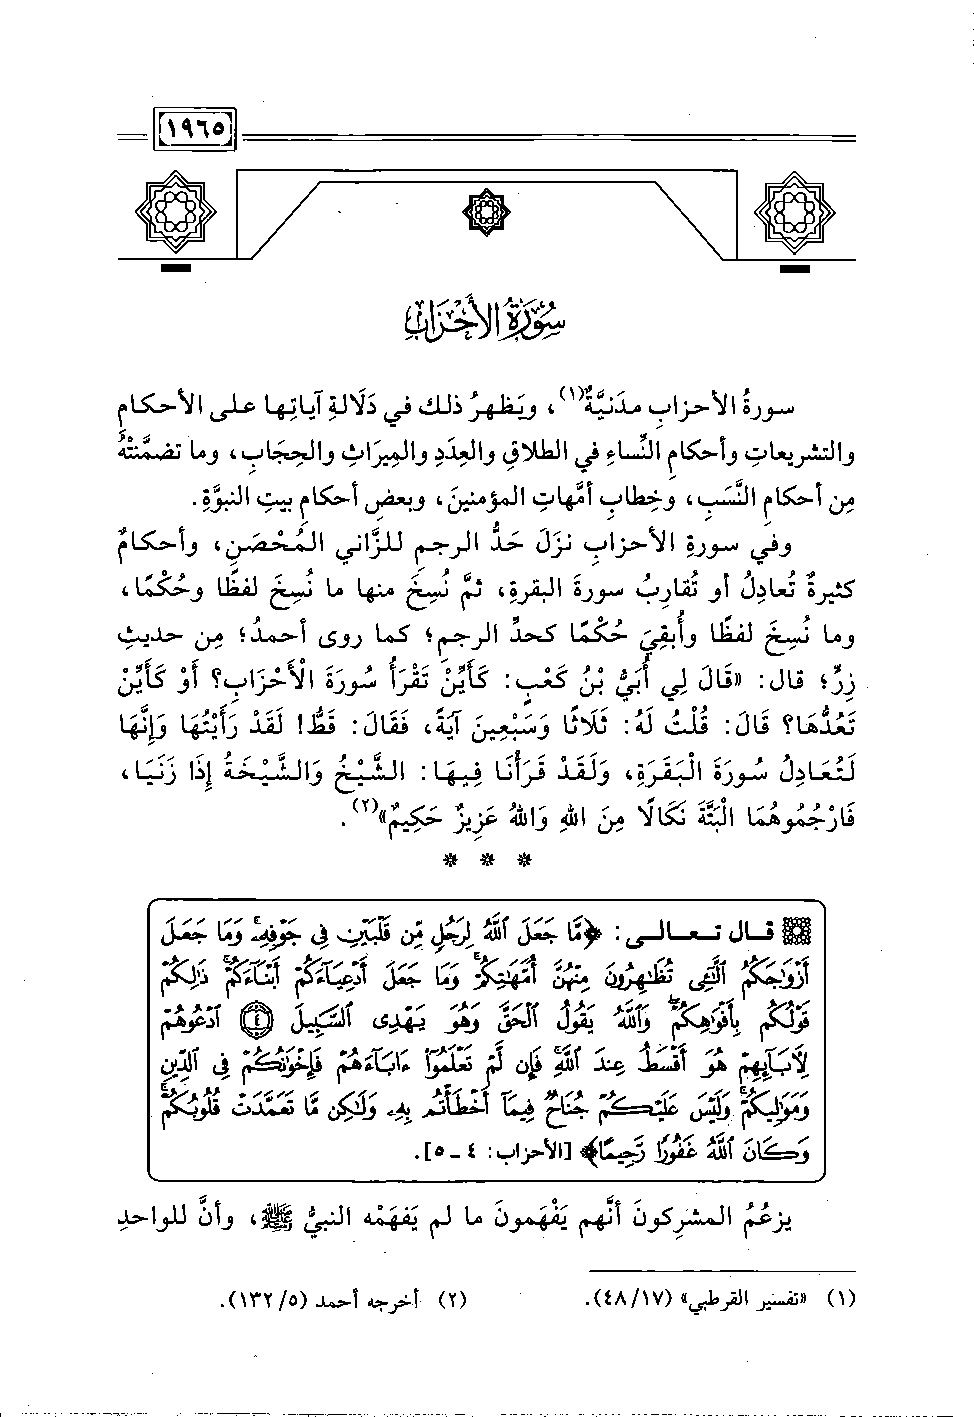 ١٩٦٥
سُورَةُ الأَحْزَابِ
سورةُ الأحزابِ مدَنيَّةٌ(١)، ويَظهرُ ذلك في دَلَالةِ آياتِها على الأحكامِ
والتشريعاتِ وأحكامِ النِّساءِ في الطلاقِ والعِدَدِ والمِيرَاثِ والحِجَابِ، وما تضمَّنَتْهُ
مِن أحكامِ النَّسَبِ، وخِطابِ أمَّهاتِ المؤمنينَ، وبعضِ أحكامِ بيتِ النبوَّةِ.
وفي سورةِ الأحزابِ نزَلَ حَدُّ الرجمِ للزَّاني المُحْصَنِ، وأحكامٌ
كثيرةٌ تُعادِلُ أو تُقارِبُ سورةَ البقرةِ، ثمَّ نُسِخَ منها ما نُسِخَ لفظًا وحُكْمًا،
وما نُسِخَ لفظًا وأُبقِيَ حُكْمًا كحدِّ الرجمِ؛ كما روى أحمدُ؛ مِن حديثِ
زِرٍّ؛ قال: «قَالَ لِي أُبَيُّ بْنُ كَعْبٍ: كَأَيِّنْ تَقْرَأُ سُورَةَ الْأَحْزَابِ؟ أَوْ كَأَيِّنْ
تَعُدُّهَا؟ قَالَ: قُلْتُ لَهُ: ثَلَاثًا وَسَبْعِينَ آيَةً، فَقَالَ: قَطُّ! لَقَدْ رَأَيْتُهَا وَإِنَّهَا
لَتُعَادِلُ سُورَةَ الْبَقَرَةِ، وَلَقَدْ قَرَأْنَا فِيهَا: الشَّيْخُ وَالشَّيْخَةُ إِذَا زَنَيَا،
فَارْجُمُوهُمَا الْبَتَّةَ نَكَالًا مِنَ اللهِ وَاللهُ عَزِيزٌ حَكِيمٌ»(٢).
* * *
قال تعالى: ﴿مَّا جَعَلَ ٱللَّهُ لِرَجُلٍ مِّن قَلْبَيْنِ فِى جَوْفِهِۦۚ وَمَا جَعَلَ
أَزْوَٰجَكُمُ ٱلَّٰٓـِٔى تُظَٰهِرُونَ مِنْهُنَّ أُمَّهَٰتِكُمْۚ وَمَا جَعَلَ أَدْعِيَآءَكُمْ أَبْنَآءَكُمْۚ ذَٰلِكُمْ
قَوْلُكُم بِأَفْوَٰهِكُمْۖ وَٱللَّهُ يَقُولُ ٱلْحَقَّ وَهُوَ يَهْدِى ٱلسَّبِيلَ ۝٤ ٱدْعُوهُمْ
لِأٓبَآئِهِمْ هُوَ أَقْسَطُ عِندَ ٱللَّهِۚ فَإِن لَّمْ تَعْلَمُوٓا۟ ءَابَآءَهُمْ فَإِخْوَٰنُكُمْ فِى ٱلدِّينِ
وَمَوَٰلِيكُمْۚ وَلَيْسَ عَلَيْكُمْ جُنَاحٌ فِيمَآ أَخْطَأْتُم بِهِۦ وَلَٰكِن مَّا تَعَمَّدَتْ قُلُوبُكُمْۚ
وَكَانَ ٱللَّهُ غَفُورًا رَّحِيمًا﴾ [الأحزاب: ٤ ـ ٥].
يزعُمُ المشرِكونَ أنَّهم يَفْهَمونَ ما لم يَفهَمْه النبيُّ ﷺ، وأنَّ للواحدِ
(١) «تفسير القرطبي» (٤٨/١٧).
(٢) أخرجه أحمد (١٣٢/٥).